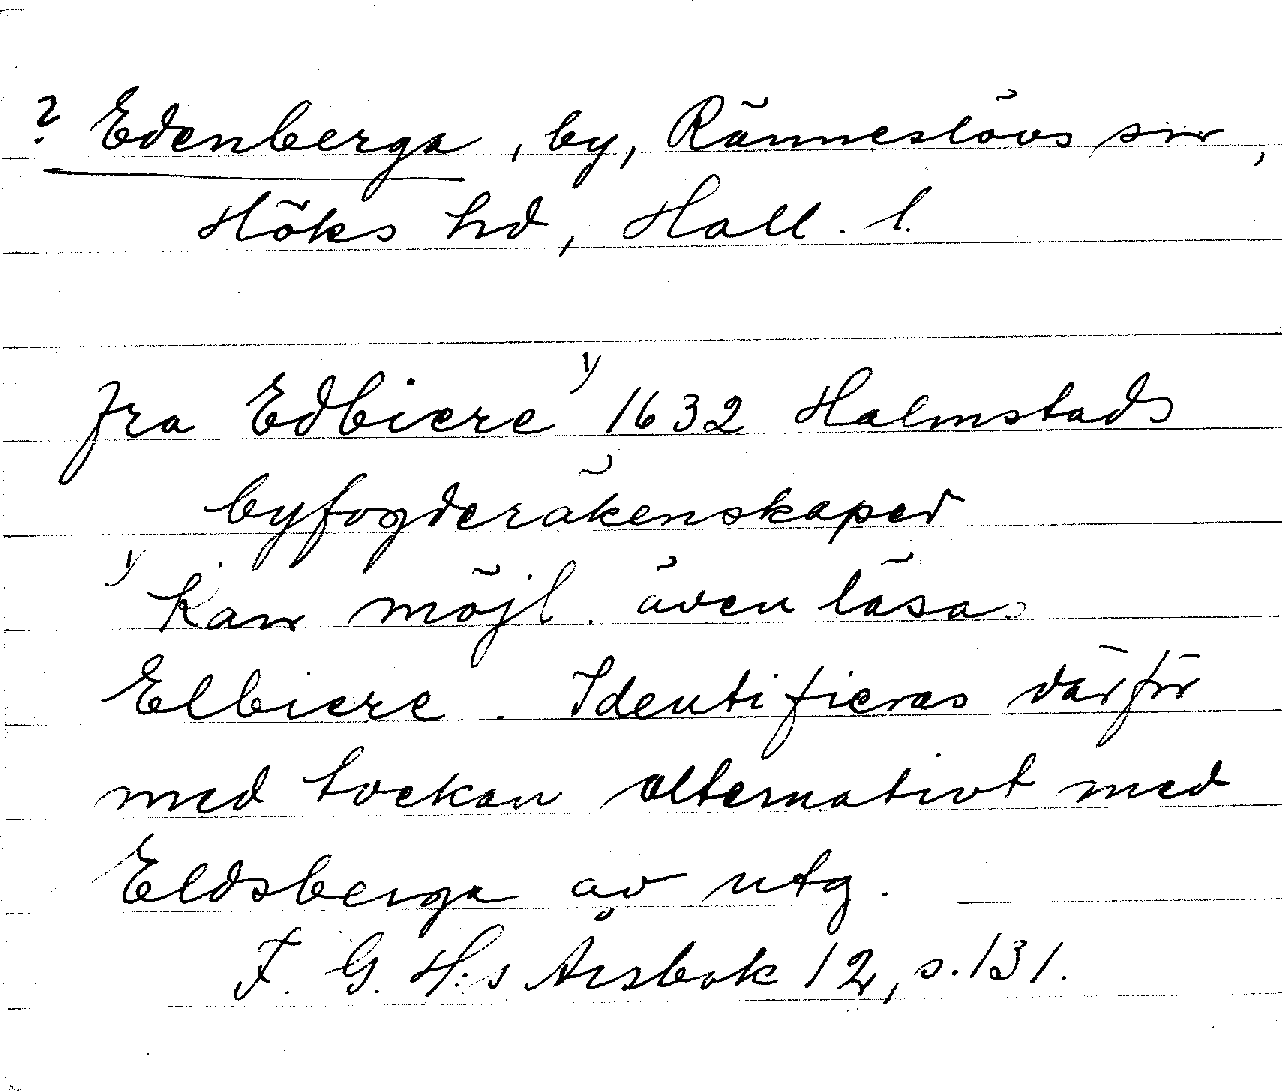 ? Edenberga, by, Ränneslövs sn,
Höks hd, Hall. l.
fra Edbiere 1) 1632 Halmstads
byfogderäkenskaper
1) Kan möjl. även läsas
Elbiere. Identifieras därför
med tvekan alternativt med
Eldsberga av utg.
F. G. H:s Årsbok 12, s. 131.